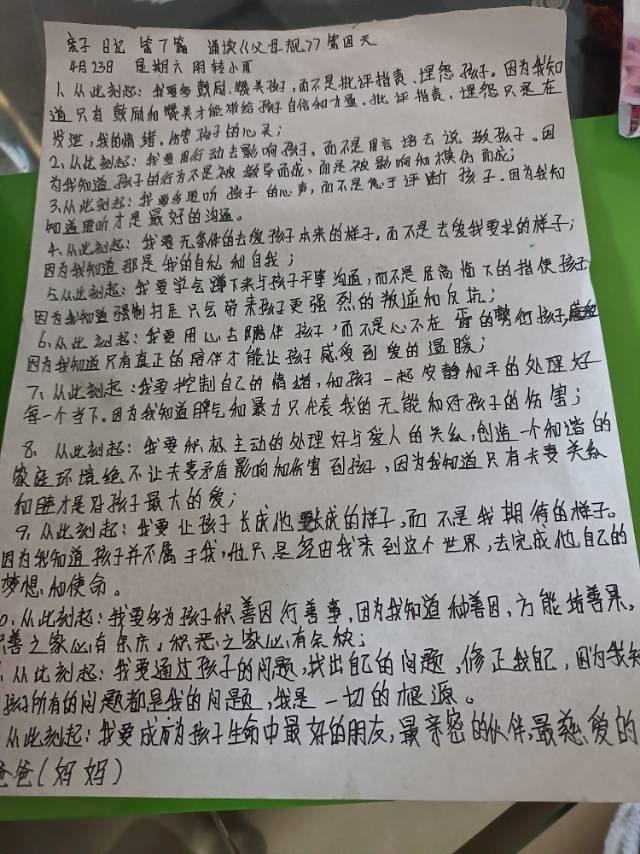 亲子日记 第7篇 诵读《父母规》第四天
4月23日 星期六 阴转小雨
1、从此刻起：我要多鼓励、赞美孩子，而不是批评指责、埋怨孩子。因为我知
道只有鼓励和赞美才能带给孩子自信和力量，批评指责、埋怨只是在
发泄，我的情绪，伤害孩子的心灵；
2、从此刻起：我要用行动去影响孩子，而不是用言语去说教孩子。因
为我知道孩子的行为不是被教导而成，而是被影响和模仿而成；
3、从此刻起：我要多聆听孩子的心声，而不是急于评断孩子。因为我知
知道聆听才是最好的沟通。
4、从此刻起：我要无条件的去爱孩子本来的样子，而不是去爱我要求的样子；
因为我知道那是我的自私和自我；
5、从此刻起：我要学会蹲下来与孩子平等沟通，而不是居高临下的指使孩子
因为我知道强制打压只会带来孩子更强烈的叛逆和反抗；
6、从此刻起：我要用心去陪伴孩子，而不是心不在焉的敷衍孩子，
因为我知道只有真正的陪伴才能让孩子感受到爱的温暖；
7、从此刻起：我要控制自己的情绪，和孩子一起安静和平的处理好
每一个当下。因为我知道脾气和暴力只代表我的无能和对孩子的伤害；
8、从此刻起：我要积极主动的处理好与爱人的关系，创造一个和谐的
家庭环境绝不让夫妻矛盾影响和伤害到孩子，因为我知道只有夫妻关系
和睦才是对孩子最大的爱；
9、从此刻起：我要让孩子长成他要长成的样子，而不是我期待的样子。
因为我知道孩子并不属于我，他只是经由我来到这个世界，去完成他自己的
梦想和使命。
0、从此刻起：我要多为孩子积善因行善事，因为我知道种善因，方能结善果。
积善之家必有余庆，积恶之家必有余殃；
从此刻起：我要通过孩子的问题，找出自己的问题，修正我自己，因为我知
孩子所有的问题都是我的问题，我是一切的根源。
从此刻起：我要成为孩子生命中最好的朋友，最亲密的伙伴，最慈爱的
爸爸（妈妈）